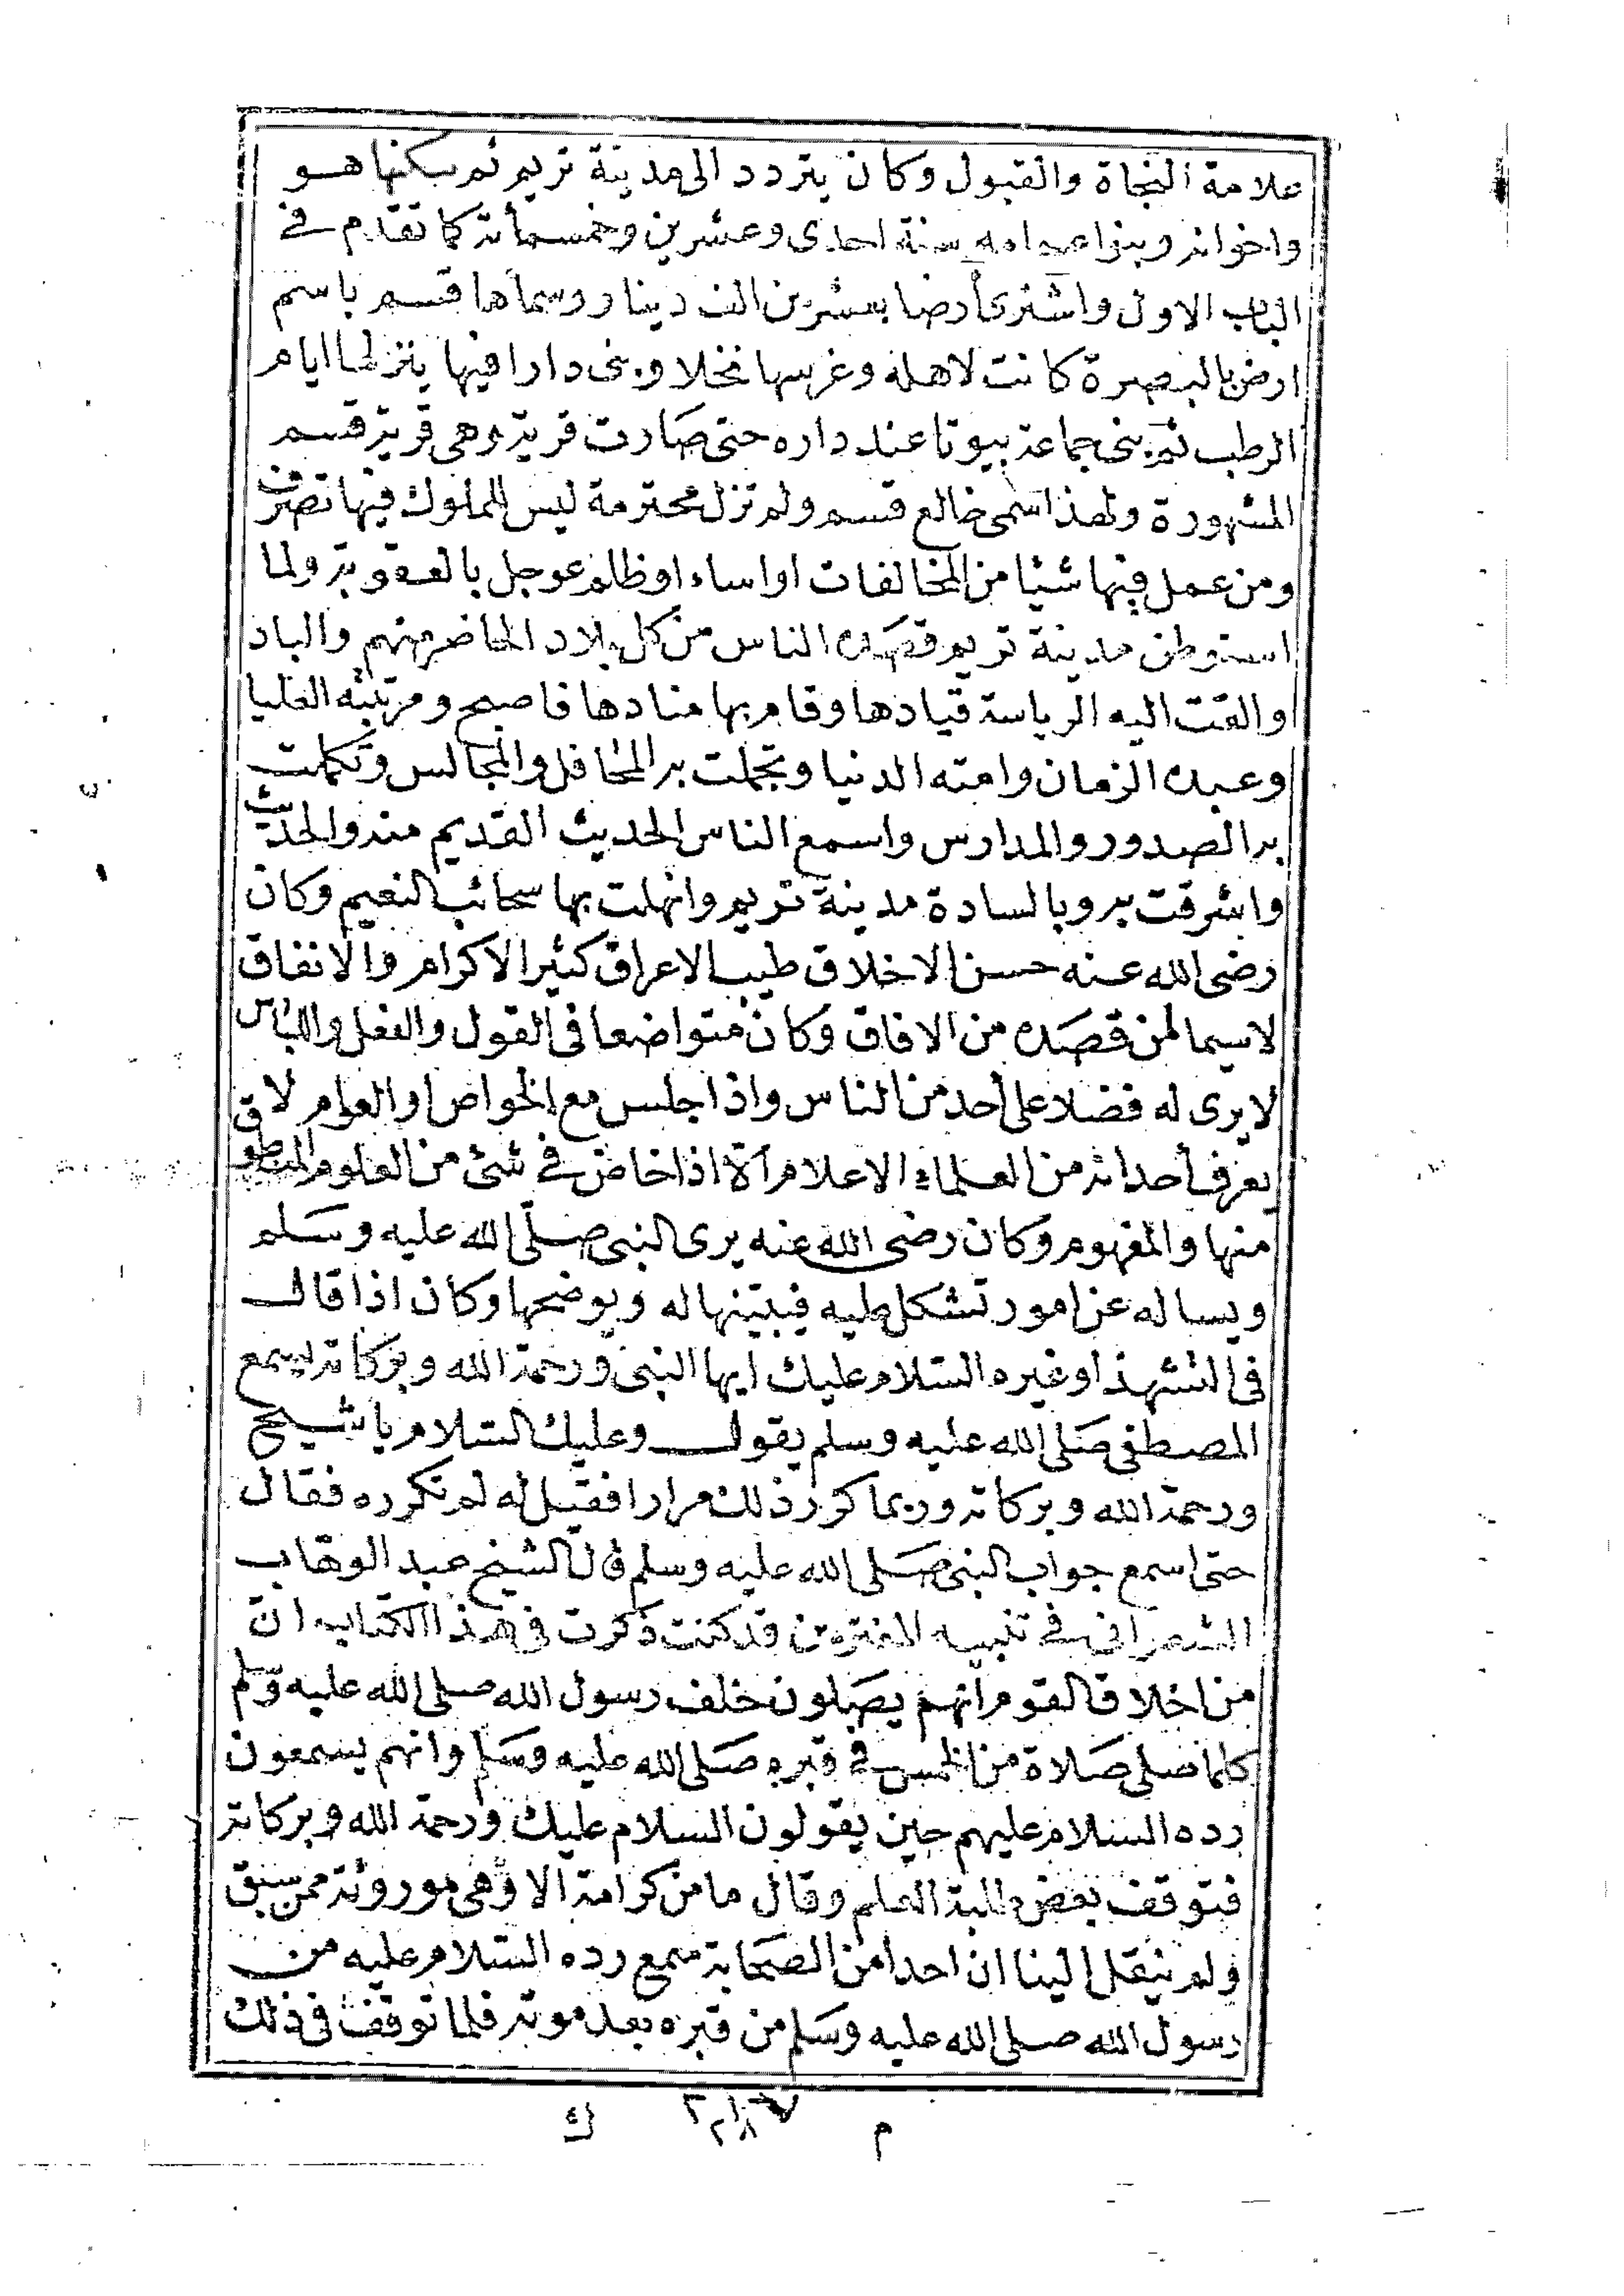 علامة النجاة والقبول وكان يتردد الى مدينة تريم ثم سكنها هو
واخوانه وبنوا عمه سنة احدى وعشرين وخمسمأئة كما تقدم في
الباب الاول واشترى أرضا بعشرين الف دينار وسماها قسم باسم
ارض بالبصرة كانت لاهله وغرسها نخلا وبنى دارا فيها ينزلها ايام
الرطب ثم بنى جماعة بيوتا عند داره حتى صارت قرية وهى قرية قسم
المشهورة ولهذا سمى خالع قسم ولم تزل محترمة ليس للملوك فيها تصرف
ومن عمل فيها شيئا من المخالفات او اساء او ظلم عوجل بالعقوبة ولما
استوطن مدينة تريم قصده الناس من كل بلاد الحاضر منهم والباد
والقت اليه الرياسة قيادها وقام بها منادها فاصبح ومرتبته العليا
وعبده الزمان وامته الدنيا وتجملت به المحافل والمجالس وتكملت
به الصدور والمدارس واسمع الناس الحديث القديم منه والحديث
واشرقت به وبالسادة مدينة تريم وانهلت بها سحائب النعيم وكان
رضى الله عنه حسن الاخلاق طيب الاعراق كثير الاكرام والانفاق
لاسيما لمن قصده من الافاق وكان متواضعا فى القول والفعل واللباس
لايرى له فضلا على أحد من الناس واذا جلس مع الخواص او العوام لا
يعرف أحد انه من العلماء الاعلام الا اذا خاض في شئ من العلوم المنطوق
منها والمفهوم وكان رضى الله عنه يرى النبى صلّى الله عليه وسلم
ويساله عن امور تشكل عليه فيبينها له ويوضحها وكان اذا قال
فى التشهد او غيره السّلام عليك ايها النبى ورحمة الله وبركاته يسمع
المصطفى صلى الله عليه وسلم يقول وعليك السّلام يا شيخ
ورحمة الله وبركاته وربما كرر ذلك مرارا فقيل له لم تكرره فقال
حتى اسمع جواب النبى صلى الله عليه وسلم قال الشيخ عبد الوهاب
الشعرانى في تنبيه المغترين قد كنت ذكرت فى هذا الكتاب ان
من اخلاق القوم أنهم يصلون خلف رسول الله صلى الله عليه وسلم
كلما صلى صلاة من الخمس في قبره صلى الله عليه وسلم وانهم يسمعون
رده السلام عليهم حين يقولون السلام عليك ورحمة الله وبركاته
فتوقف بعض طلبة العلم وقال ما من كرامة الا وهى موروثة ممن سبق
ولم ينقل الينا ان احدا من الصحابة سمع رده السّلام عليه من
رسول الله صلى الله عليه وسلم من قبره بعد موته فلما توقف فى ذلك
م ك